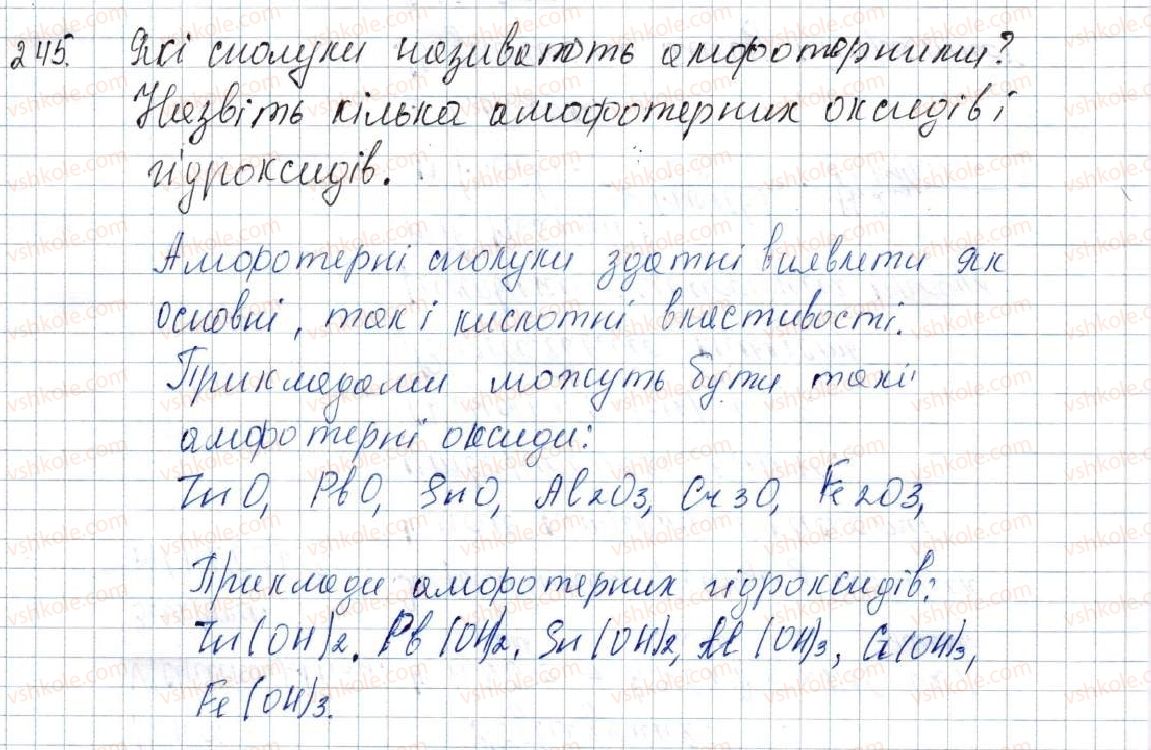 245. Які сполуки називають амфотерними?
Назвіть кілька амофотерних оксидів і
гідроксидів.
Аморотерні сполуки здатні виявляти як
основні, так і кислотні властивості.
Прикладами можуть бути такі
амфотерні оксиди:
ZnO, PbO, SnO, Al2O3, Cr3O, Fe2O3,
Приклади аморотерних гідроксидів:
Zn(OH)2. Pb(OH)2, Sn(OH)2, Al(OH)3, Cr(OH)3,
Fe(OH)3.
vshkole.com